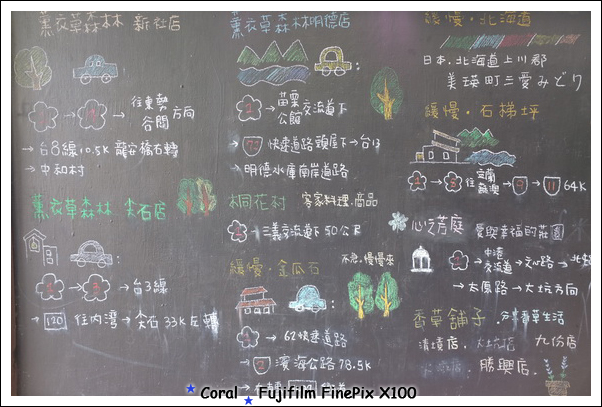 薰衣草森林 新社店
往東勢
谷關 方向
→ 台8線10.5K 龍安橋右轉
→ 中和村
薰衣草森林 尖石店
→ 台3線
→ 120 往內灣 → 尖石 33K左轉
薰衣草森林明德店
苗栗
公館 交流道下
→ 72 快速道路頭屋下 → 台13
→ 明德水庫南岸道路
桐花村 客家料理.商品
→ 三義交流道下 50公尺
緩慢・金瓜石 不急.慢慢來
→ 62快速道路
→ 2 濱海公路 78.5K
緩慢・北海道
日本.北海道上川郡
美瑛町三愛みどり
緩慢・石梯坪
1 → 5 往 宜蘭
蘇澳 → 9 → 11 64K
心之芳庭 愛與幸福的莊園
1 → 中港
交流道 → 文心路 →
→ 太原路 → 大坑方向
香草舖子 .分享香草生活
清境店. 大坑店 九份店
勝興店.
Coral Fujifilm FinePix X100